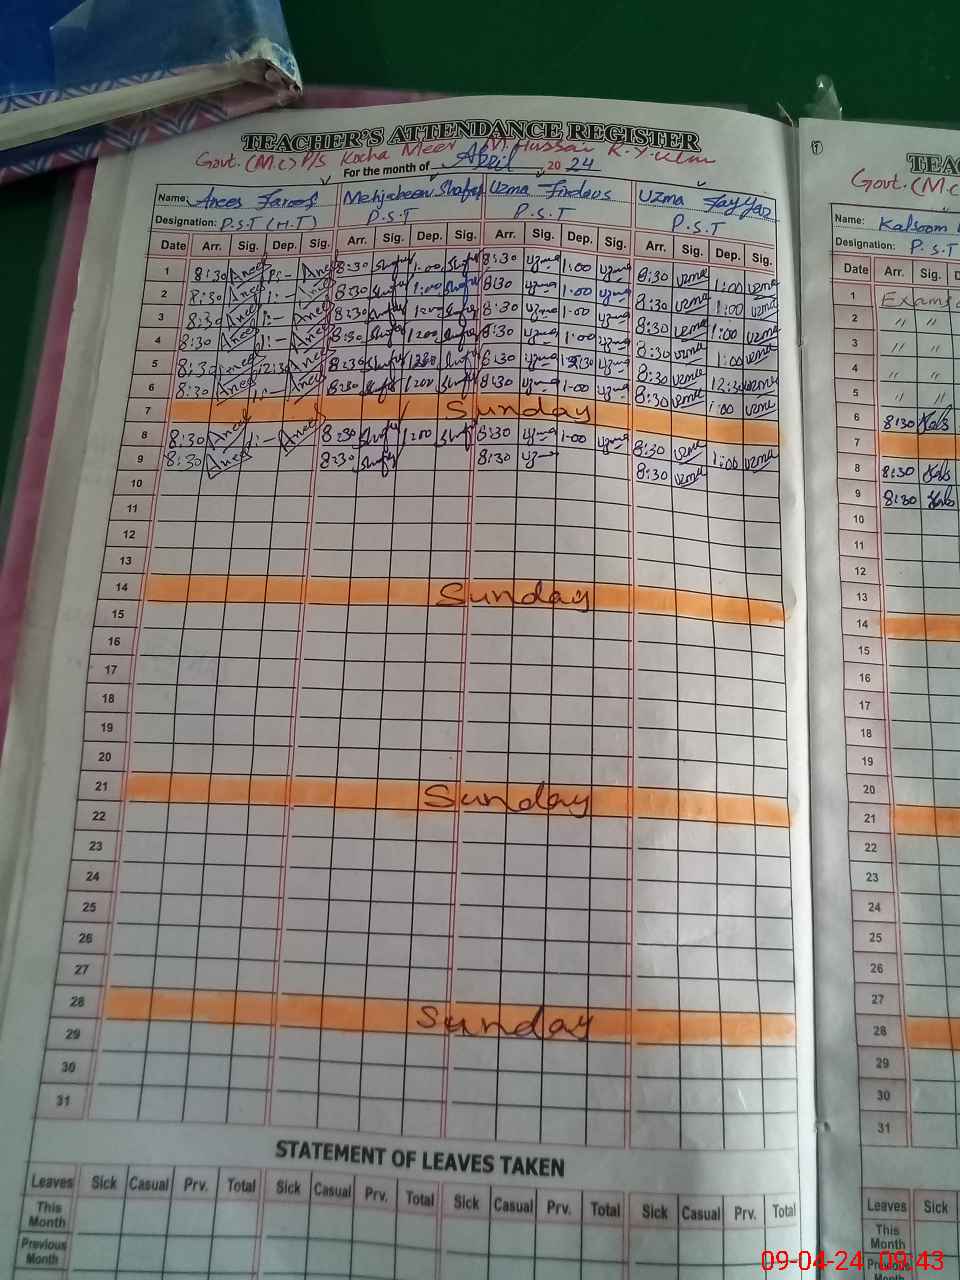 TEACHER'S ATTENDANCE REGISTER
Govt. (M.C) P/S Kocha Meer M. Hussain R.Y.
For the month of April 2024
Name: Anees Mehjabeen Uzma Firdous Uzma
Designation: P.S.T (H.T) P.S.T P.S.T P.S.T
Date Arr. Sig. Dep. Sig. Arr. Sig. Dep. Sig. Arr. Sig. Dep. Sig. Arr. Sig. Dep. Sig.
1 8:30 Anees 1:- Anees 8:30 1:00 8:30 Uzma 1:00 Uzma 8:30 uzma 1:00 uzma
2 8:30 Anees 1:- Anees 8:30 1:00 8:30 Uzma 1:00 Uzma 8:30 uzma 1:00 uzma
3 8:30 Anees 1:- Anees 8:30 1:00 8:30 Uzma 1:00 Uzma 8:30 uzma 1:00 uzma
4 8:30 Anees 1:- Anees 8:30 1:00 8:30 Uzma 1:00 Uzma 8:30 uzma 1:00 uzma
5 8:30 Anees 12:30 Anees 8:30 8:30 Uzma 12:30 Uzma 8:30 uzma 12:30 uzma
6 8:30 Anees 1:- Anees 8:30 1:00 8:30 Uzma 1:00 Uzma 8:30 uzma 1:00 uzma
7 Sunday
8 8:30 Anees 1:- Anees 8:30 1:00 8:30 Uzma 1:00 Uzma 8:30 uzma 1:00 uzma
9 8:30 Anees 8:30 8:30 8:30 uzma
10
11
12
13
14 Sunday
15
16
17
18
19
20
21 Sunday
22
23
24
25
26
27
28 Sunday
29
30
31
STATEMENT OF LEAVES TAKEN
Leaves Sick Casual Prv. Total Sick Casual Prv. Total Sick Casual Prv. Total Sick Casual Prv. Total
This Month
Previous Month
TEAC
Govt. (M.C
Name: Kalsoom
Designation: P.S.T
Date Arr. Sig. D
1 Exams
2 " "
3 " "
4 " "
5 " "
6 8:30 Kals
7
8 8:30 Kals
9 8:30 Kals
10
11
12
13
14
15
16
17
18
19
20
21
22
23
24
25
26
27
28
29
30
31
Leaves Sick
This Month
Previous Month
09-04-24 09:43